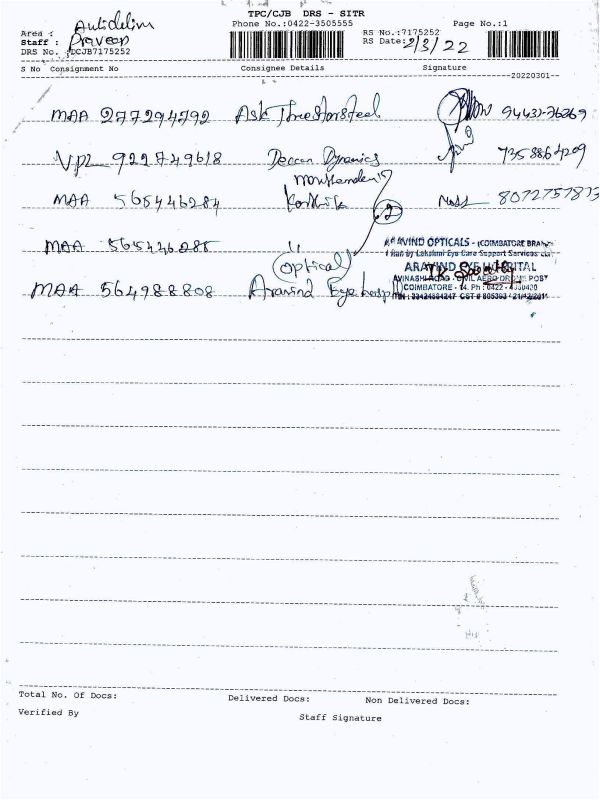 TPC/CJB DRS - SITR
Phone No.:0422-3505555 Page No.:1
Area :
Staff : Praveen
DRS No. :DCJB7175252
RS No.:7175252
RS Date: 2/3/22
S No Consignment No Consignee Details Signature
20220301
MAA 277294792 Ask 94431-76269
VPL 922749618 Deccan Dynamics 7358864209
MAA 565446284 Karthik
2
MAA 565446285 "
ARAVIND OPTICALS - (COIMBATORE BRANCH
Run by Lakshmi Eye Care Support Services
(optical)
ARAVIND EYE HOSPITAL
MAA 564988808 Aravind Eye hospital
AVINASHI ROAD - CIVIL AERODROME POST
COIMBATORE - 14. Ph : 0422 -
Total No. Of Docs: Delivered Docs: Non Delivered Docs:
Verified By Staff Signature